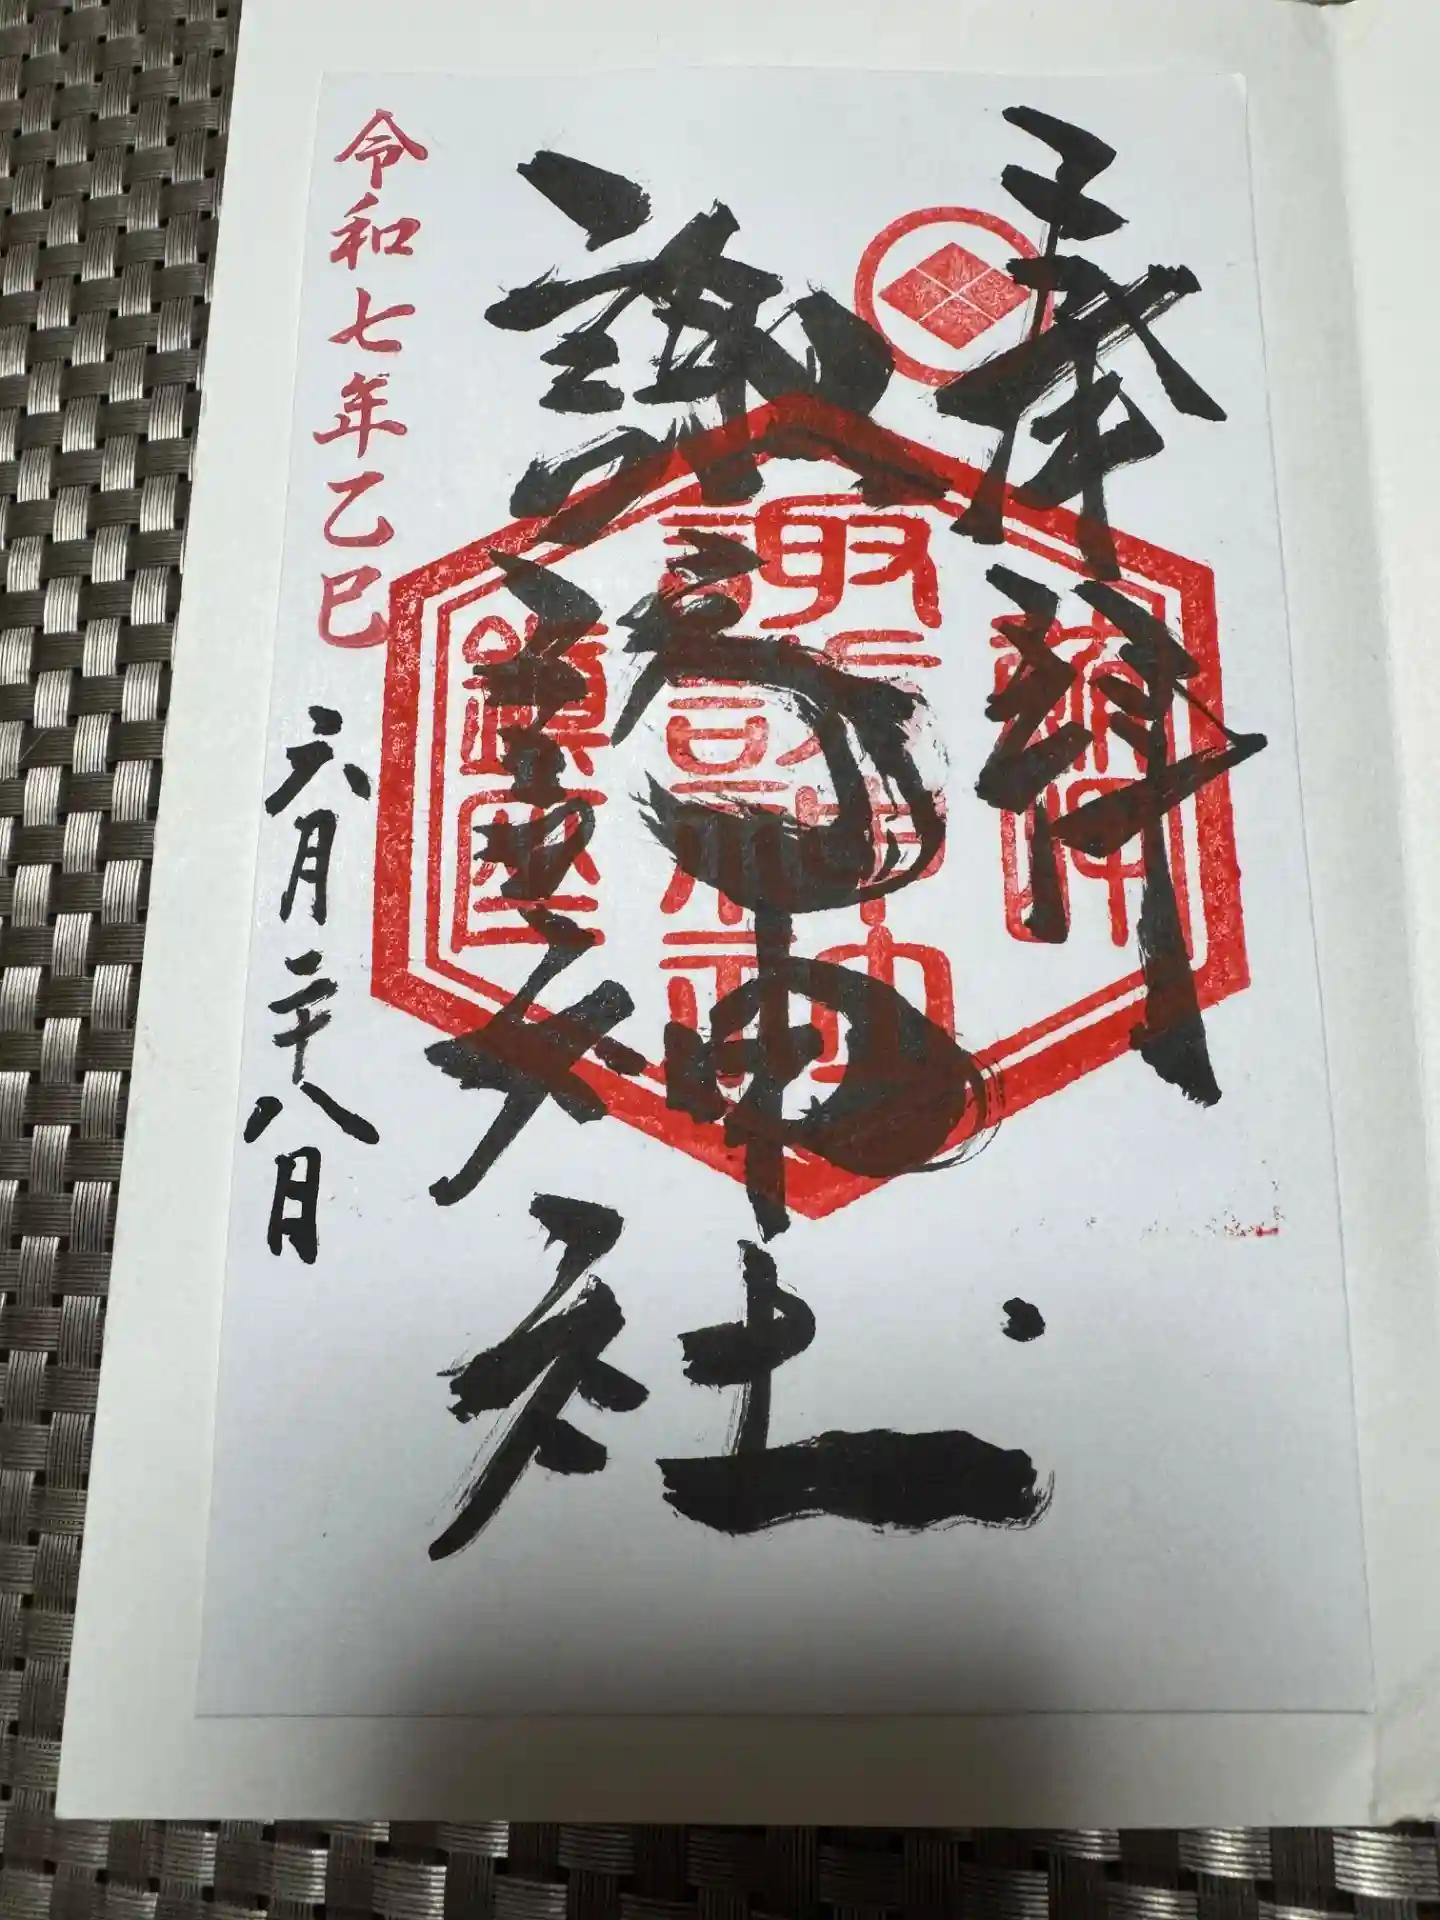 奉拝
諏訪神社
諏訪神社
令和七年乙巳
六月二十八日